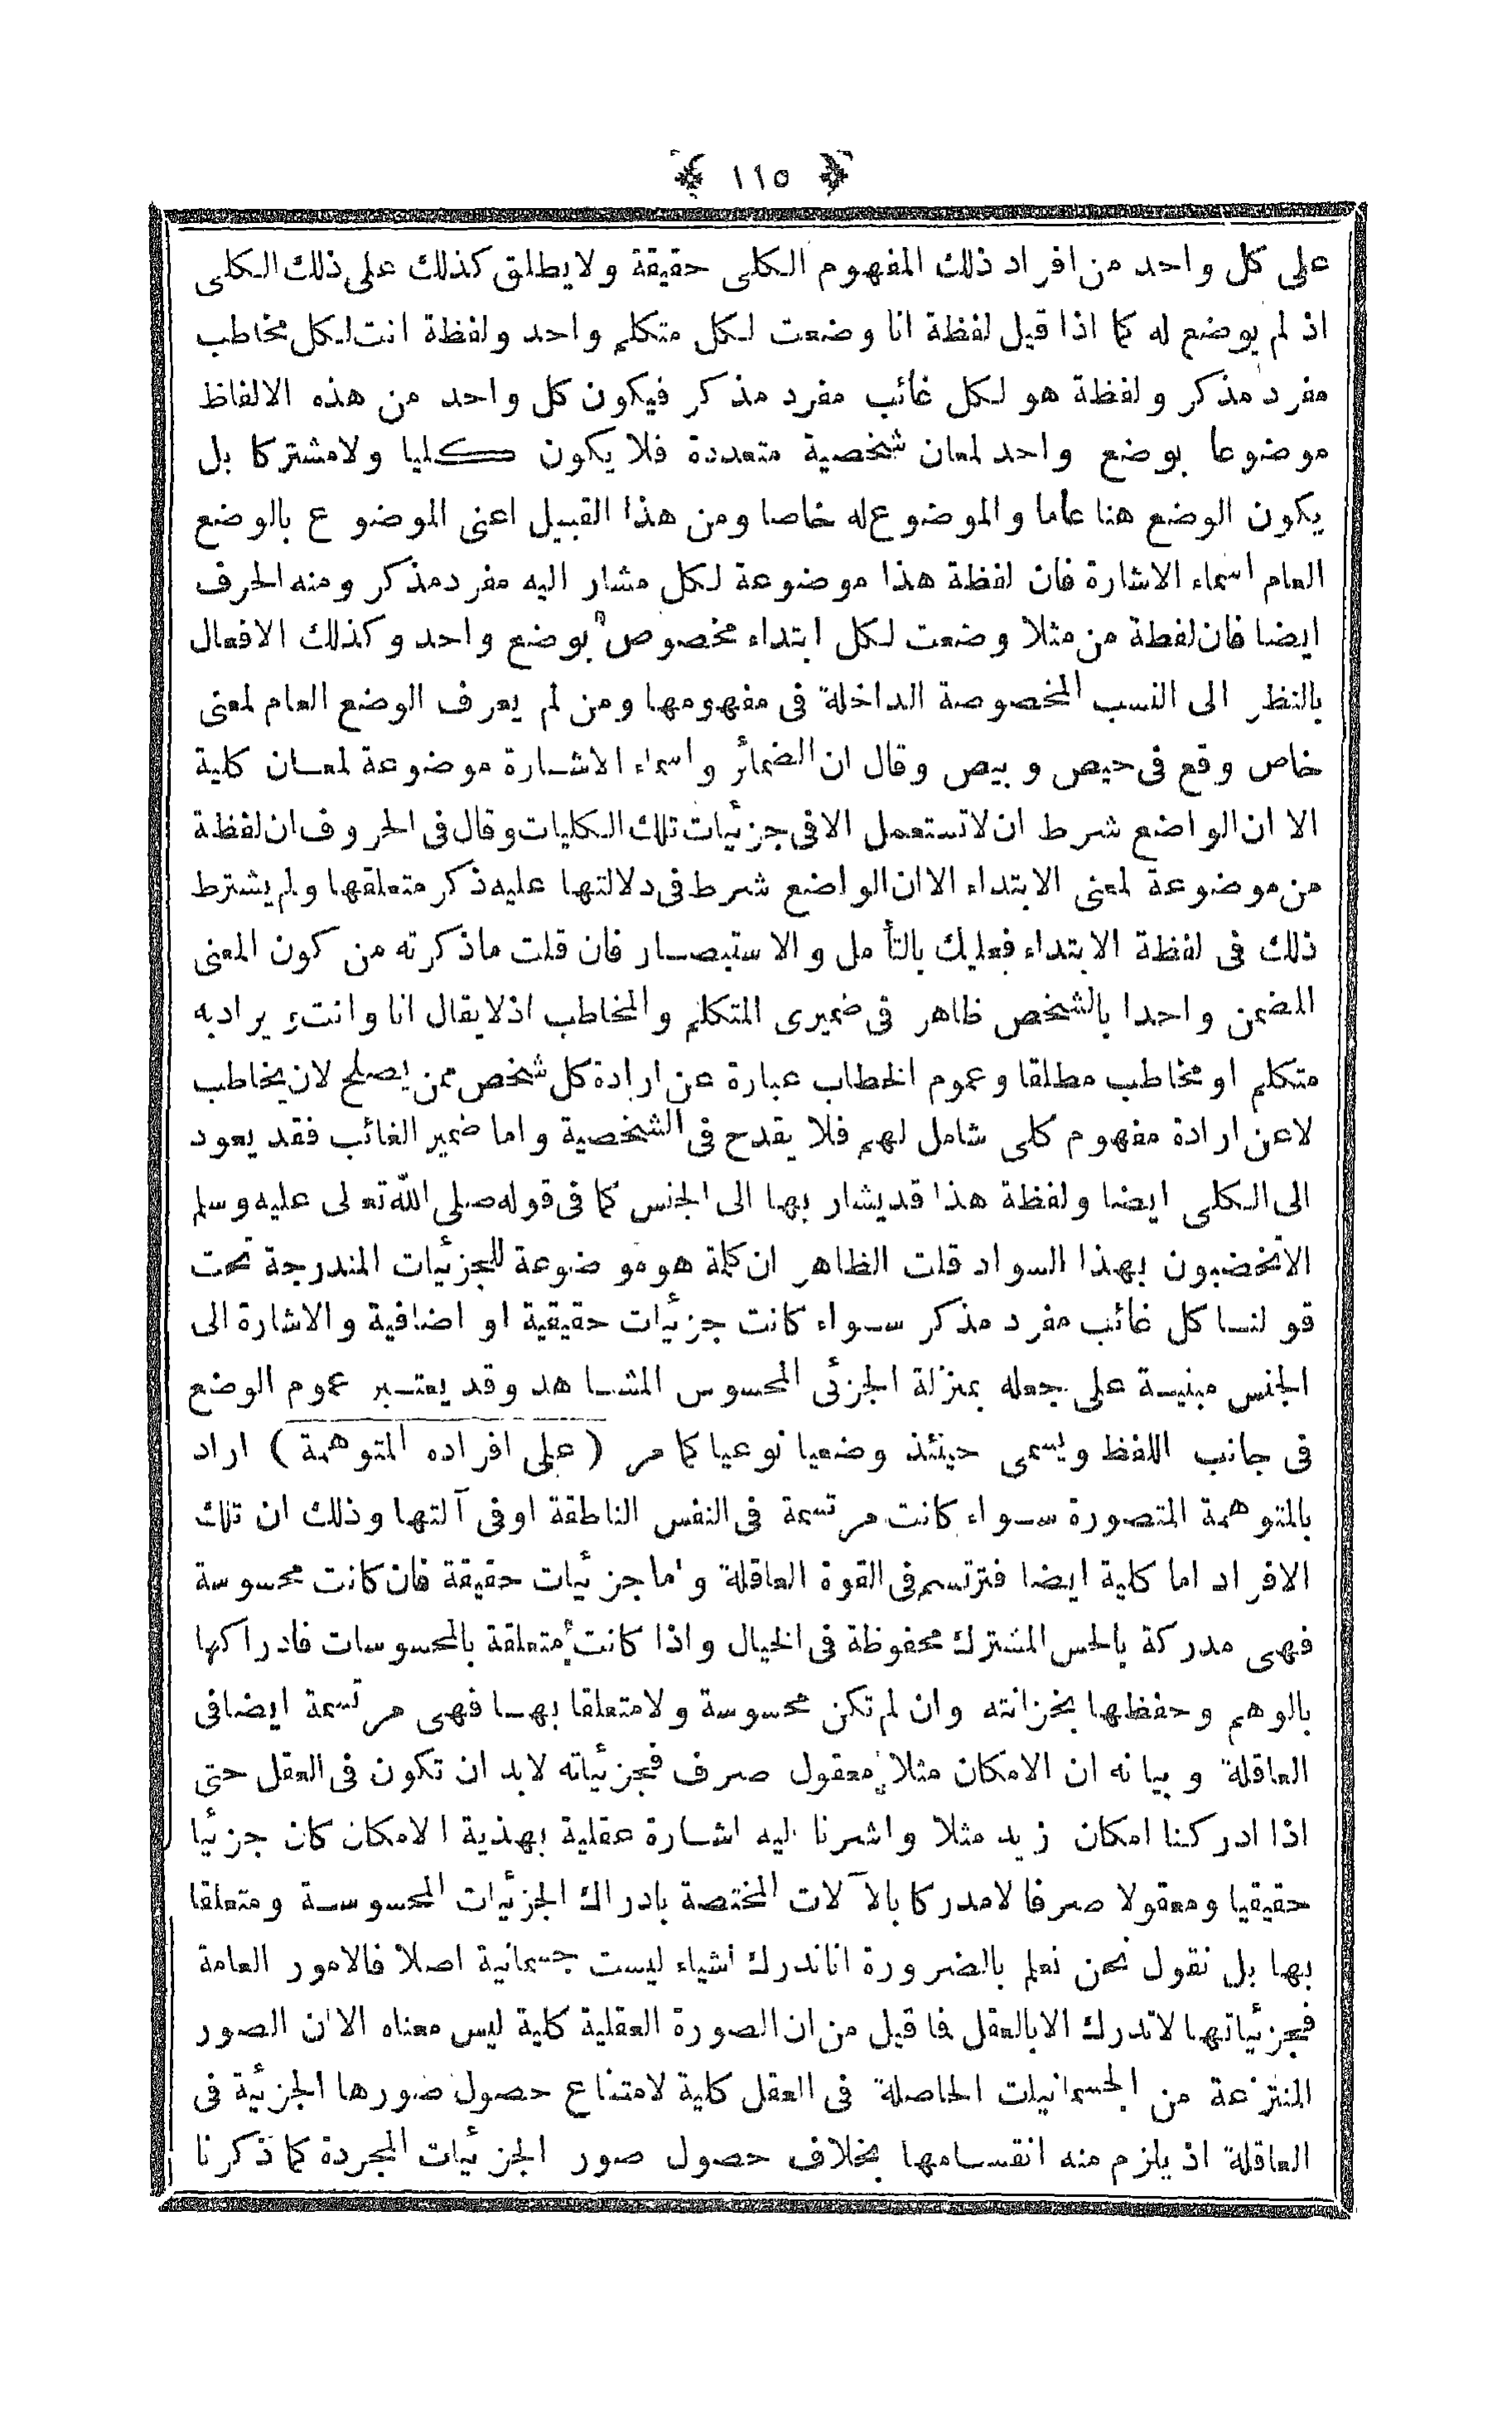 ﴿ ١١٥ ﴾
على كل واحد من افراد ذلك المفهوم الكلى حقيقة ولا يطلق كذلك على ذلك الكلى
اذ لم يوضع له كما اذا قيل لفظة انا وضعت لكل متكلم واحد ولفظة انت لكل مخاطب
مفرد مذكر ولفظة هو لكل غائب مفرد مذكر فيكون كل واحد من هذه الالفاظ
موضوعا بوضع واحد لمعان شخصية متعددة فلا يكون كليا ولا مشتركا بل
يكون الوضع هنا عاما والموضوع له خاصا ومن هذا القبيل اعنى الموضوع بالوضع
العام اسماء الاشارة فان لفظة هذا موضوعة لكل مشار اليه مفرد مذكر ومنه الحرف
ايضا فان لفظة من مثلا وضعت لكل ابتداء مخصوص بوضع واحد وكذلك الافعال
بالنظر الى النسب المخصوصة الداخلة فى مفهومها ومن لم يعرف الوضع العام لمعنى
خاص وقع فى حيص وبيص وقال ان الضمائر واسماء الاشارة موضوعة لمعان كلية
الا ان الواضع شرط ان لا تستعمل الا فى جزئيات تلك الكليات وقال فى الحروف ان لفظة
من موضوعة لمعنى الابتداء الا ان الواضع شرط فى دلالتها عليه ذكر متعلقها ولم يشترط
ذلك فى لفظة الابتداء فعليك بالتأمل والاستبصار فان قلت ما ذكرته من كون المعنى
المضمن واحدا بالشخص ظاهر فى ضميرى المتكلم والمخاطب اذ لا يقال انا وانت ويراد به
متكلم او مخاطب مطلقا وعموم الخطاب عبارة عن ارادة كل شخص ممن يصلح لان يخاطب
لا عن ارادة مفهوم كلى شامل لهم فلا يقدح فى الشخصية واما ضمير الغائب فقد يعود
الى الكلى ايضا ولفظة هذا قد يشار بها الى الجنس كما فى قوله صلى الله تعالى عليه وسلم
الا تخضبون بهذا السواد قلت الظاهر ان كلمة هو موضوعة للجزئيات المندرجة تحت
قولنا كل غائب مفرد مذكر سواء كانت جزئيات حقيقية او اضافية والاشارة الى
الجنس مبنية على جعله بمنزلة الجزئى المحسوس المشاهد وقد يعتبر عموم الوضع
فى جانب اللفظ ويسمى حينئذ وضعيا نوعيا كما مر (على افراده المتوهمة) اراد
بالمتوهمة المتصورة سواء كانت مرتسمة فى النفس الناطقة او فى آلتها وذلك ان تلك
الافراد اما كلية ايضا فترتسم فى القوة العاقلة واما جزئيات حقيقة فان كانت محسوسة
فهى مدركة بالحس المشترك محفوظة فى الخيال واذا كانت متعلقة بالمحسوسات فادراكها
بالوهم وحفظها بخزانته وان لم تكن محسوسة ولا متعلقا بها فهى مرتسمة ايضا فى
العاقلة وبيانه ان الامكان مثلا معقول صرف فجزئياته لابد ان تكون فى العقل حتى
اذا ادركنا امكان زيد مثلا واشرنا اليه اشارة عقلية بهذية الامكان كان جزئيا
حقيقيا ومعقولا صرفا لا مدركا بالآلات المختصة بادراك الجزئيات المحسوسة ومتعلقا
بها بل نقول نحن نعلم بالضرورة انا ندرك اشياء ليست جسمانية اصلا فالامور العامة
فجزئياتها لا تدرك الا بالعقل فما قيل من ان الصورة العقلية كلية ليس معناه الا ان الصور
المنتزعة من الجسمانيات الحاصلة فى العقل كلية لامتناع حصول صورها الجزئية فى
العاقلة اذ يلزم منه انقسامها بخلاف حصول صور الجزئيات المجردة كما ذكرنا